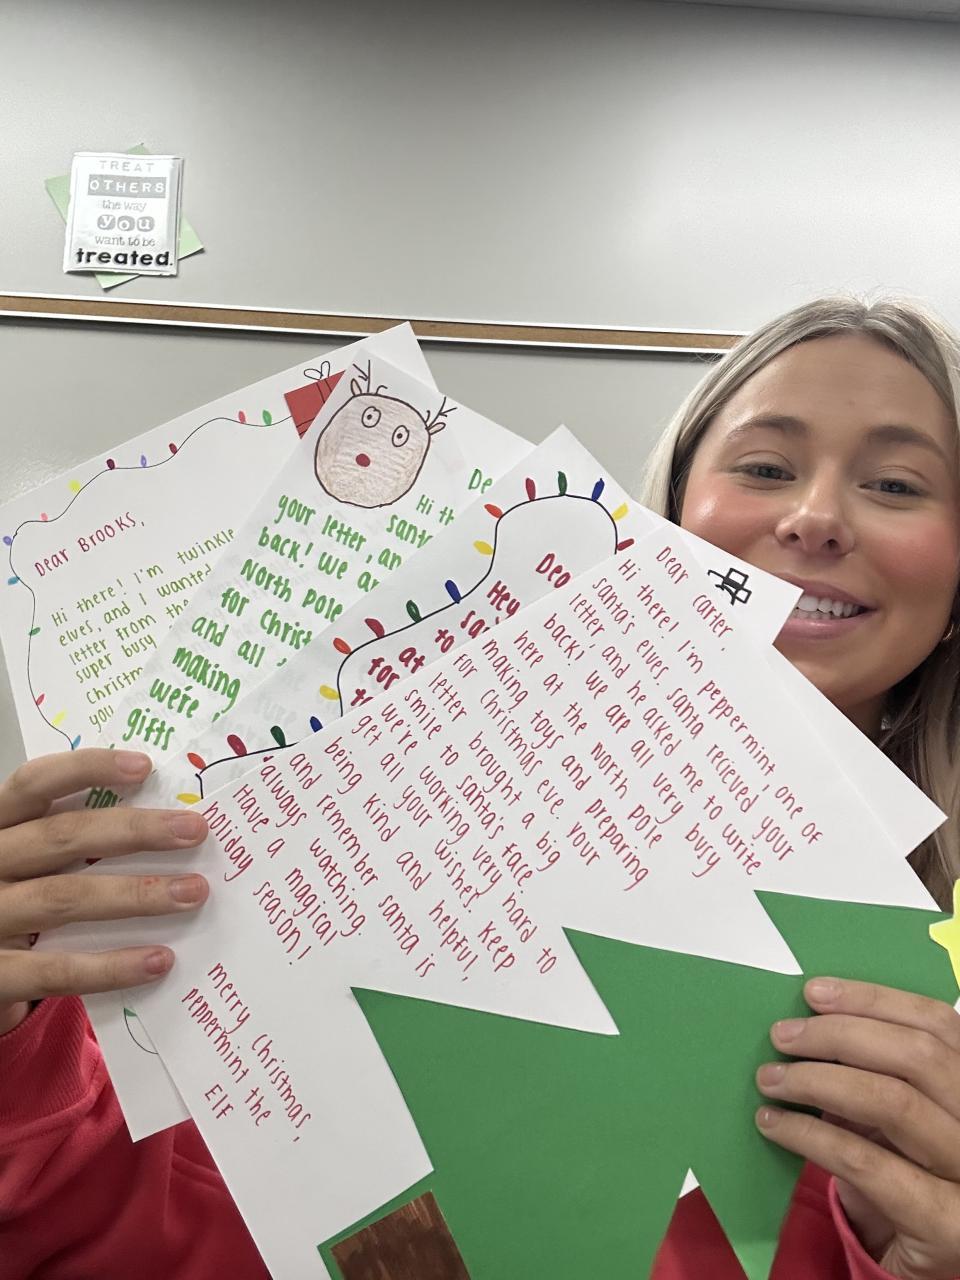 TREAT
OTHERS
the way
you
want to be
treated.
Dear Brooks,
Hi there! I'm twinkle
elves and I wanted
letter from th
super busy
christm
you
De
Hi th
your letter, an
santa
back! we ar
North pole
for Christ
and all
making
we're
gifts
Hav
Hey
sa
to
at
for
Dear carter,
Hi there! I'm peppermint, one of
santa's elves. santa recieved your
letter, and he asked me to write
back! we are all very busy
here at the North pole
making toys and preparing
for Christmas eve. Your
letter brought a big
smile to santa's face.
we're working very hard to
get all your wishes. Keep
being kind and helpful,
and remember santa is
always watching.
Have a magical
holiday season!
merry christmas,
peppermint the
Elf